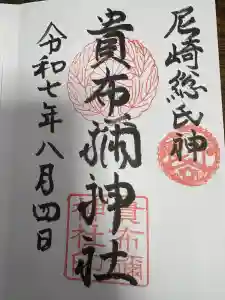 尼崎総氏神
貴布禰神社
令和七年八月四日
貴布禰
神社